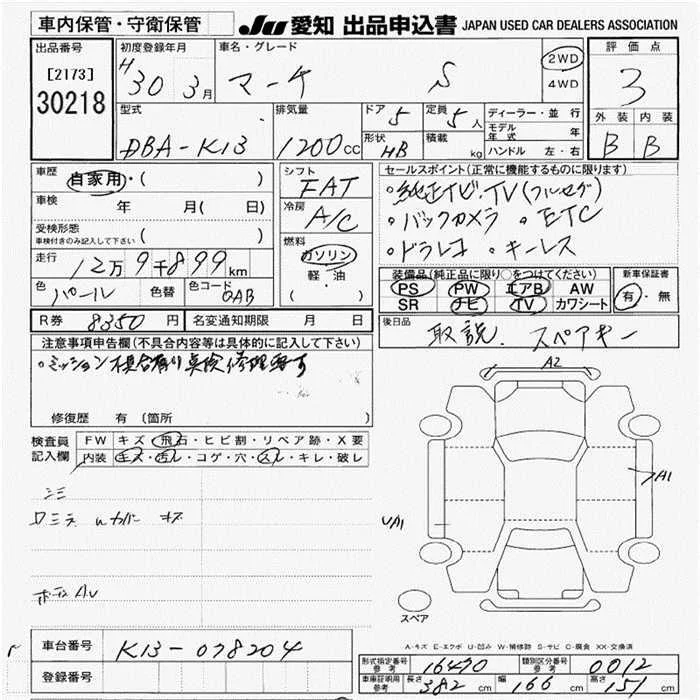 車内保管・守衛保管
JU 愛知 出品申込書 JAPAN USED CAR DEALERS ASSOCIATION
出品番号
[2173]
30218
初度登録年月
H30 3月
車名・グレード
マーチ S
2WD
4WD
評価点
3
外装 内装
B B
型式
DBA-K13
排気量
1200cc
ドア 5
定員 5人
形状 HB
積載 kg
ディーラー・並行
モデル年式 年
ハンドル 左・右
車歴 自家用・( )
車検 年 月( 日)
受検形態
車検付きのみ記入して下さい ( )
走行 12万9千899km
色 パール 色替 色コード QAB
シフト
FAT
冷房
A/C
燃料
ガソリン
軽・油
( )
セールスポイント(正常に機能するものに限ります)
・純正ナビ・TV(フルセグ)
・バックカメラ ・ETC
・ドラレコ ・キーレス
装備品(純正品に限り○をつけてください)
PS PW エアB AW
SR ナビ TV カワシート
新車保証書
有・無
R券 8350円 名変通知期限 月 日
後日品 取説. スペアキー
注意事項申告欄(不具合内容等は具体的に記入して下さい)
・ミッション不具合有り点検修理要す
修復歴 有(箇所
検査員記入欄
FW キズ・飛石・ヒビ割・リペア跡・X要
内装 キズ・汚レ・コゲ・穴・スレ・キレ・破レ
シミ
ボディAU
A2
A1
UA1
スペア
A-キズ E-エクボ U-凹み W-補修跡 S-サビ C-腐食 XX-交換済
車台番号 K13-078204
登録番号
形式指定番号参考 16470 類別区分番号参考 0012
車庫証明用参考 長さ 382cm 幅 166cm 高さ 151cm